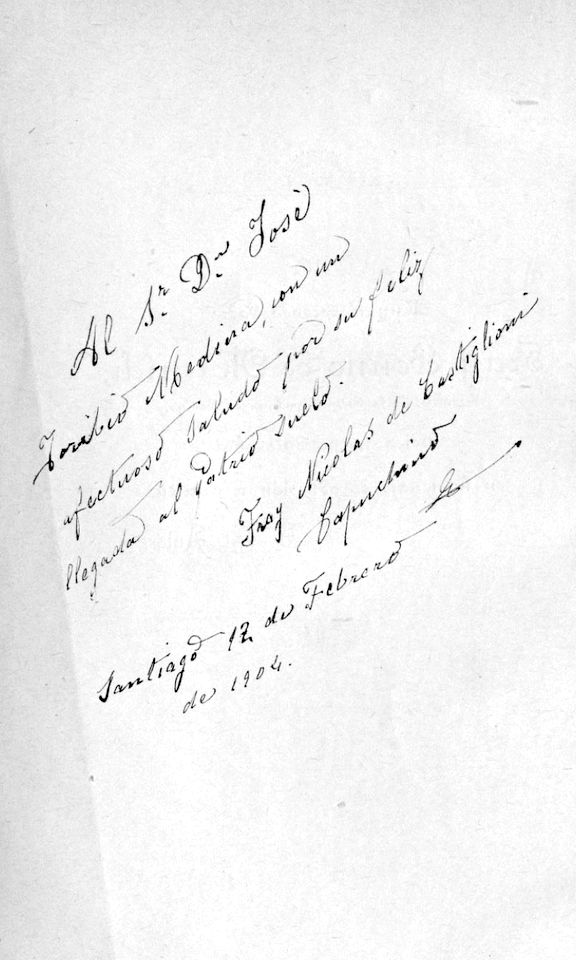 Al Sr. Dn José
Toribio Medina, con un
afectuoso saludo por su feliz
llegada al Patrio suelo.
Fray Nicolas de Castiglioni
Capuchino
Santiago 12 de Febrero
de 1904.